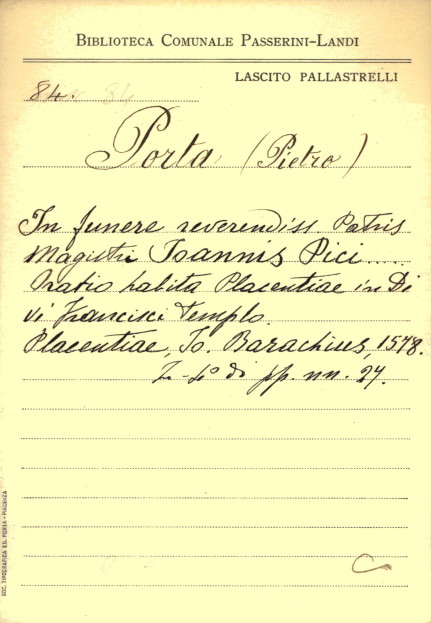 BIBLIOTECA COMUNALE PASSERINI-LANDI
LASCITO PALLASTRELLI
84.
Porta (Pietro)
In funere reverendiss. Patris
Magistri Joannis Pici....
Oratio habita Placentiae in Di
vi Francisci templo.
Placentiae, Jo. Barachius, 1578.
4° di pp. nn. 24.
SOC. TIPOGRAFICA ED. PORTA - PIACENZA